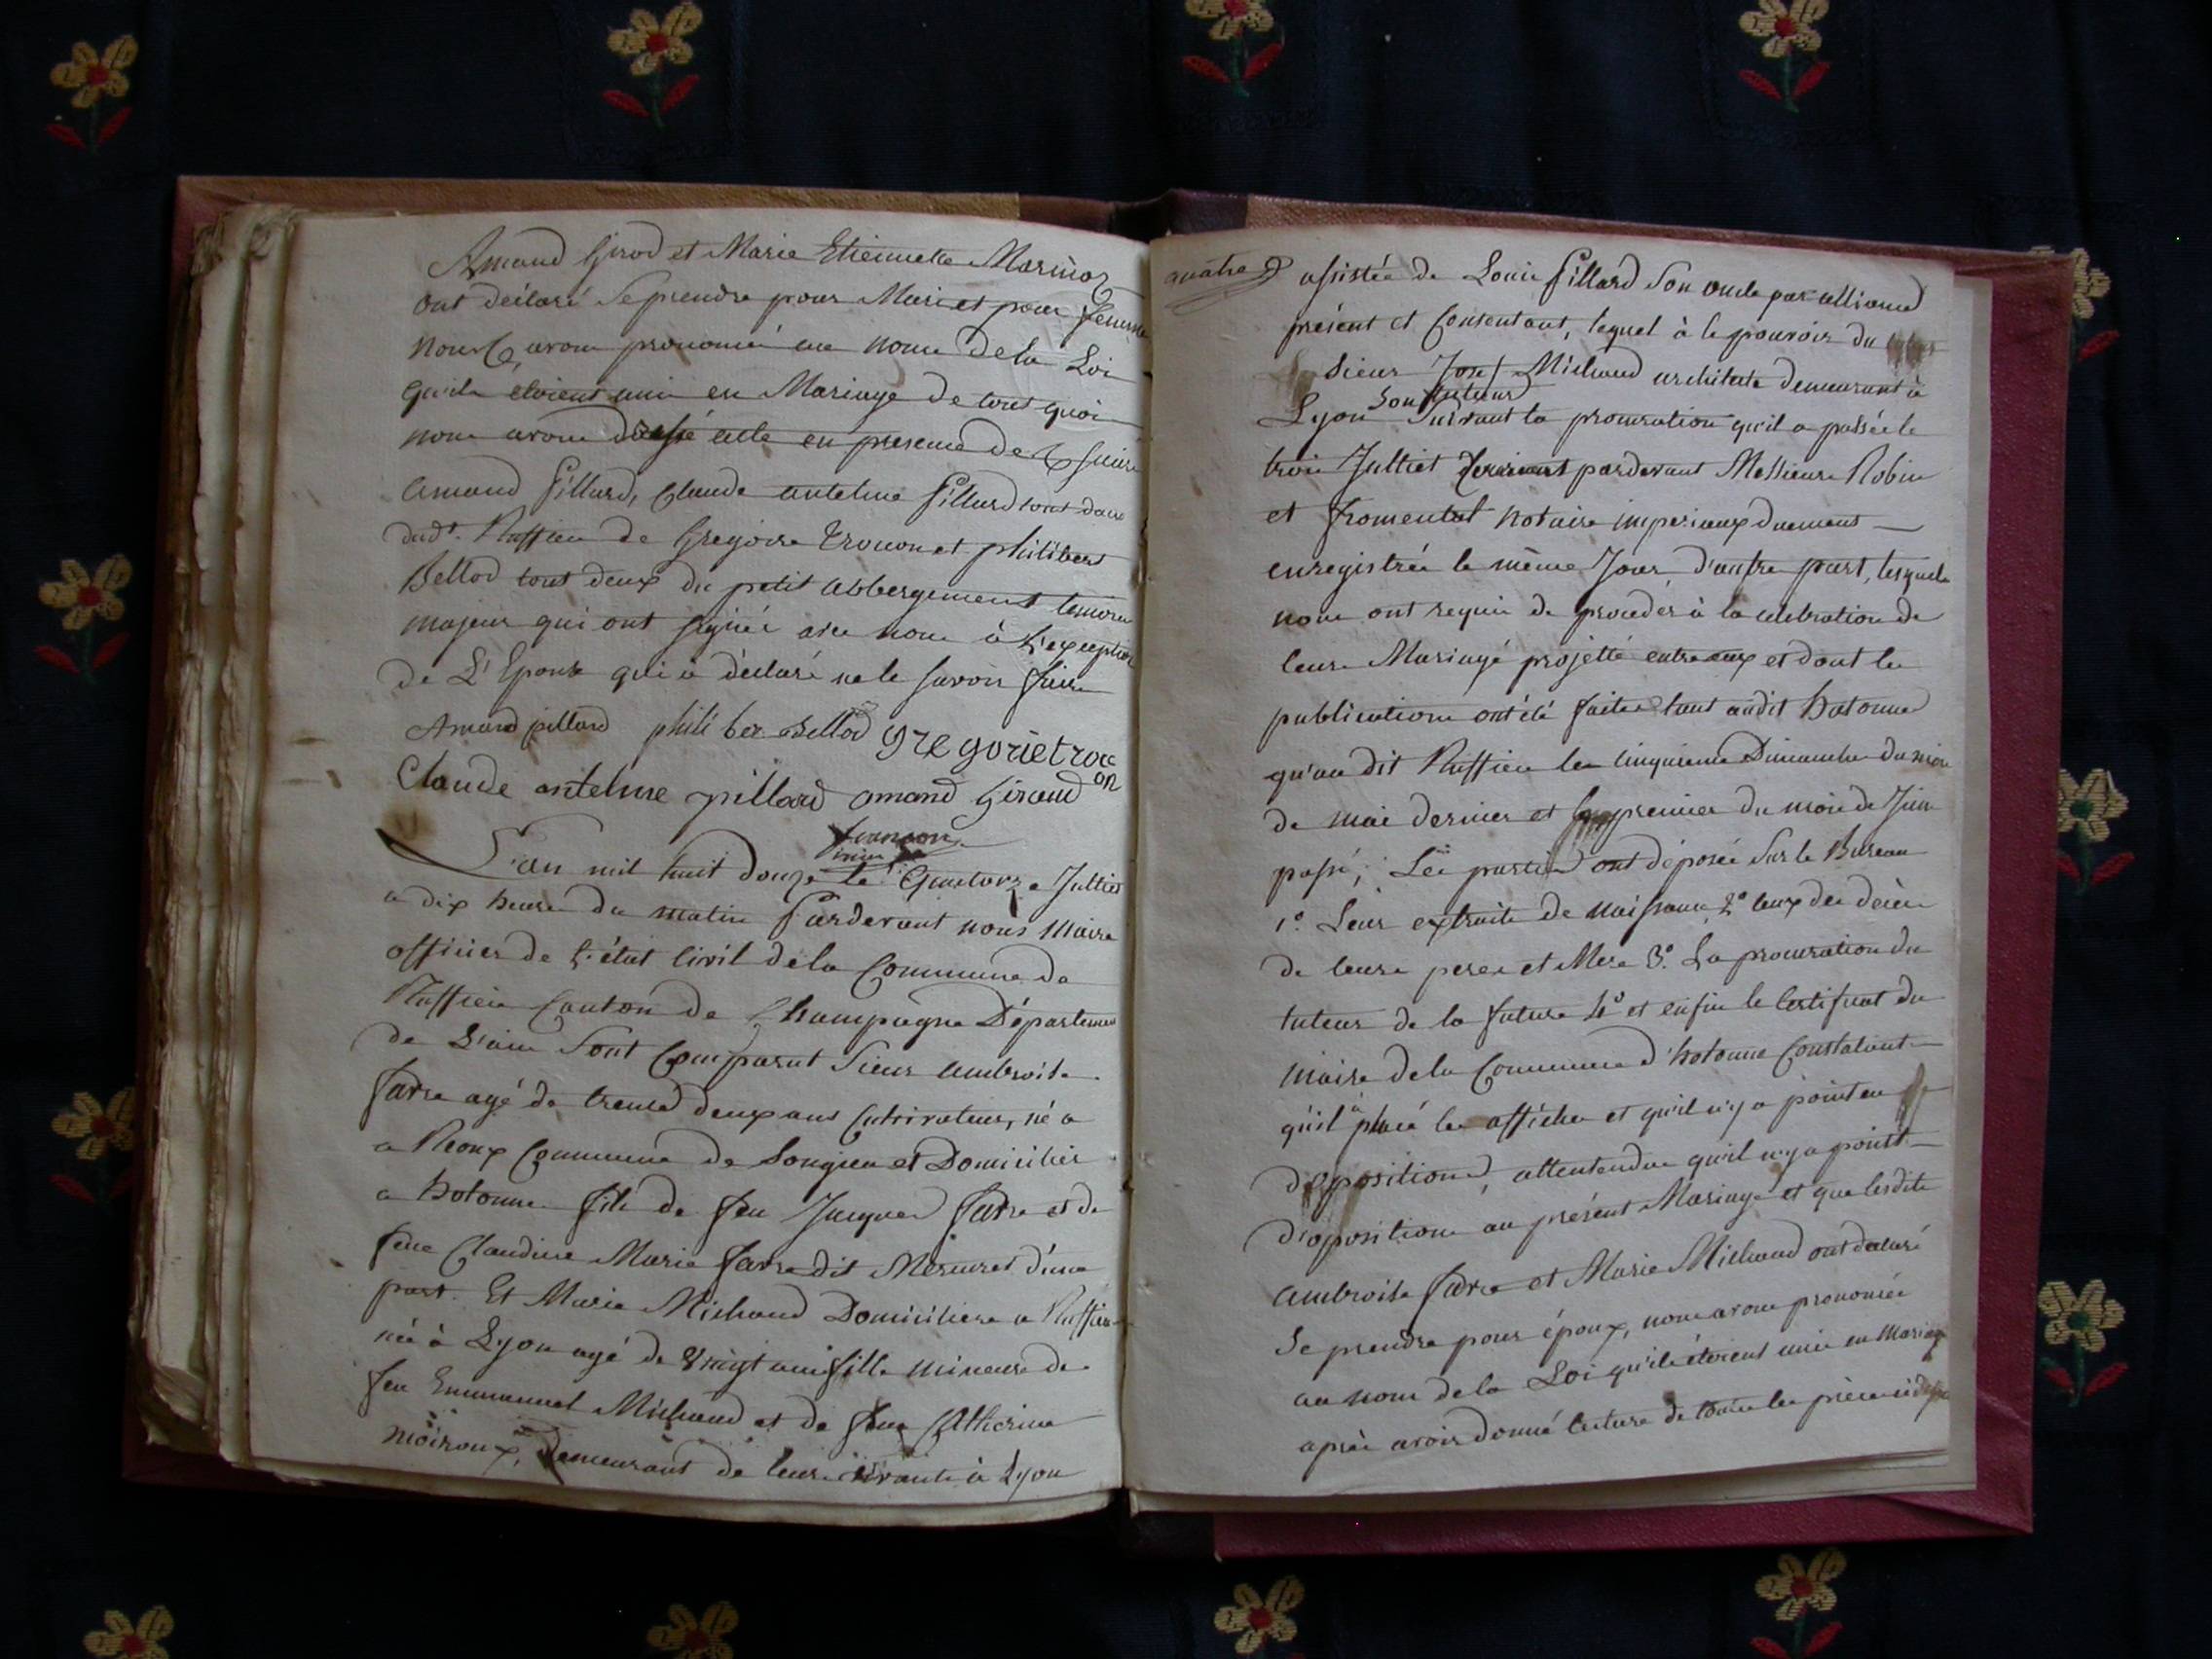 Amand Girod et Marie Etiennette Marinoz
ont déclaré Se prendre pour Mari et pour femme
nous avons prononcé au nom de la Loi
qu'ils etoient unis en Mariage de tout quoi
nous avons dressé acte en presence de
amand pillard, Claude antelme pillard tout deux
dudt. Ruffieu de Gregoire trocon et philibert
Bellod tout deux du petit abbergement temoins
majeur qui ont signés avec nous à L'exception
de L'Epouse qui à déclaré ne le savoir faire
Amand pillard philiber Bellod gregorietroc
on
Claude antelme pillard amand Giraud
L'an mil huit douze le Quatorze Julliet
a dix heures du matin Pardevant nous Maire
officier de L'état Civil de la Commune de
Ruffieu Canton de Champagne Département
de L'ain Sont Comparut Sieur ambroise
favre agé de trente deux ans Cultivateur, né a
a Commune de Songieu et Domicilié
a hotonne fils de feu Jacques favre et de
feue Claudine Marie favre dit Mercuret d'une
part. Et Marie Michaud Domiciliée a Ruffieu
née à Lyon agé de vingt ans fille mineure de
feu Emmanuel Michaud et de feue Catherine
moiroux, demeurant de leurs vivants à Lyon
quatre
assistée de Louis pillard Son oncle par alliance
présent et Consentant, lequel à le pouvoir du
Sieur Josef Michaud architecte demeurant à
Son tuteur
Lyon Suivant la procuration qu'il a passée le
trois Julliet pardevant Messieurs Robin
et fromental notaire imperiaux duement
enregistrée le même Jour d'autre part, lesquels
nous ont requis de proceder à la celebration de
leurs Mariage projetté entre eux et dont les
publications ont été faites tant audit hotonne
qu'au dit Ruffieu le cinquieme Dimanche du mois
de mai dernier et le premier du mois de Juin
passé; Les parties ont déposée Sur le Bureau
1°. Leurs extraits de naissance, 2° ceux des décès
de leurs peres et Mere 3°. La procuration du
tuteur de la future 4° et enfin le Certificat du
Maire de la Commune d'hotonne Constatant
qu'il à placé les affiches et qu'il n'y a point eu
d'opositions, attentendu qu'il n'y a point
d'opositions au présent Mariage et que lesdits
ambroise favre et Marie Michaud ont déclaré
Se prendre pour époux, nous avons prononcée
au nom de la Loi qu'ils étoient unis en Mariage
après avoir donné lecture de toutes les pièces